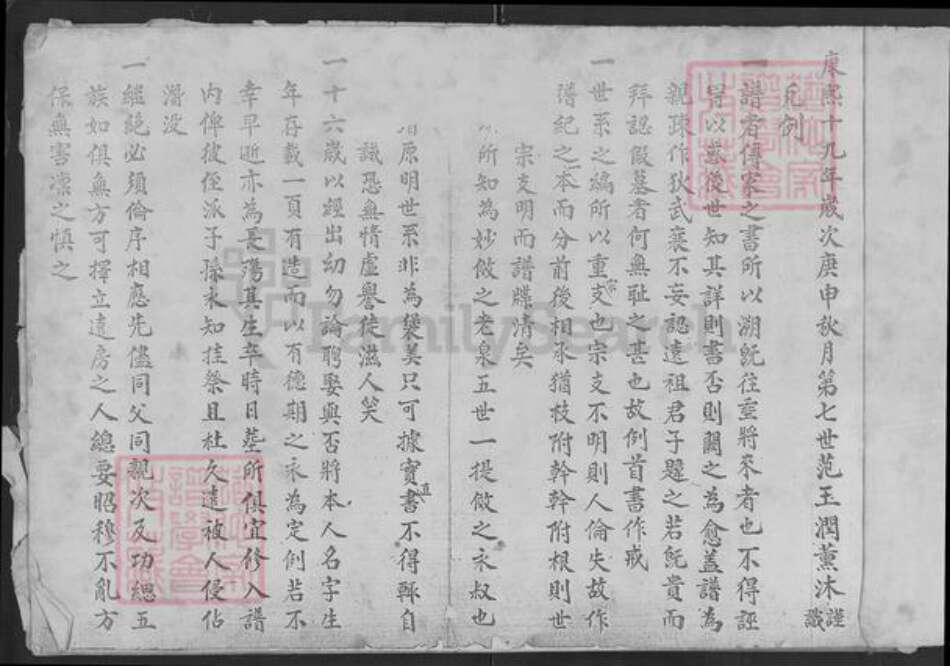 康熙十九年歲次庚申秋月第七世范王潤薰沐謹識
凡例
一譜者傳家之書所以溯既往重將來者也不得誣
以惑後世知其詳則書否則闕之為愈蓋譜為
親疎作狄武襄不妄認遠祖君子韙之若既貴而
拜認假墓者何無恥之甚也故例首書作戒
一世系之編所以重宗支也宗支不明則人倫失故作
譜紀之本而分前後相承猶枝附幹幹附根則世
宗支明而譜牒清矣
所知為妙倣之老泉五世一提倣之永叔也
原明世系非為褒美只可據實直書不得輙自
識恐無情虛譽徒滋人笑
一十六歲以經出幼勿論聘娶與否將本人名字生
年存載一頁有造而以有德期之永為定例若不
幸早逝亦為長殤其生卒時日塟所俱宜修入譜
內俾彼侄派子孫永知挂祭且杜久遠被人侵佔
潛没
一繼絕必須倫序相應先儘同父同親次及功緦五
族如俱無方可擇立遠房之人總要昭穆不亂方
保無害凜之慎之
FamilySearch